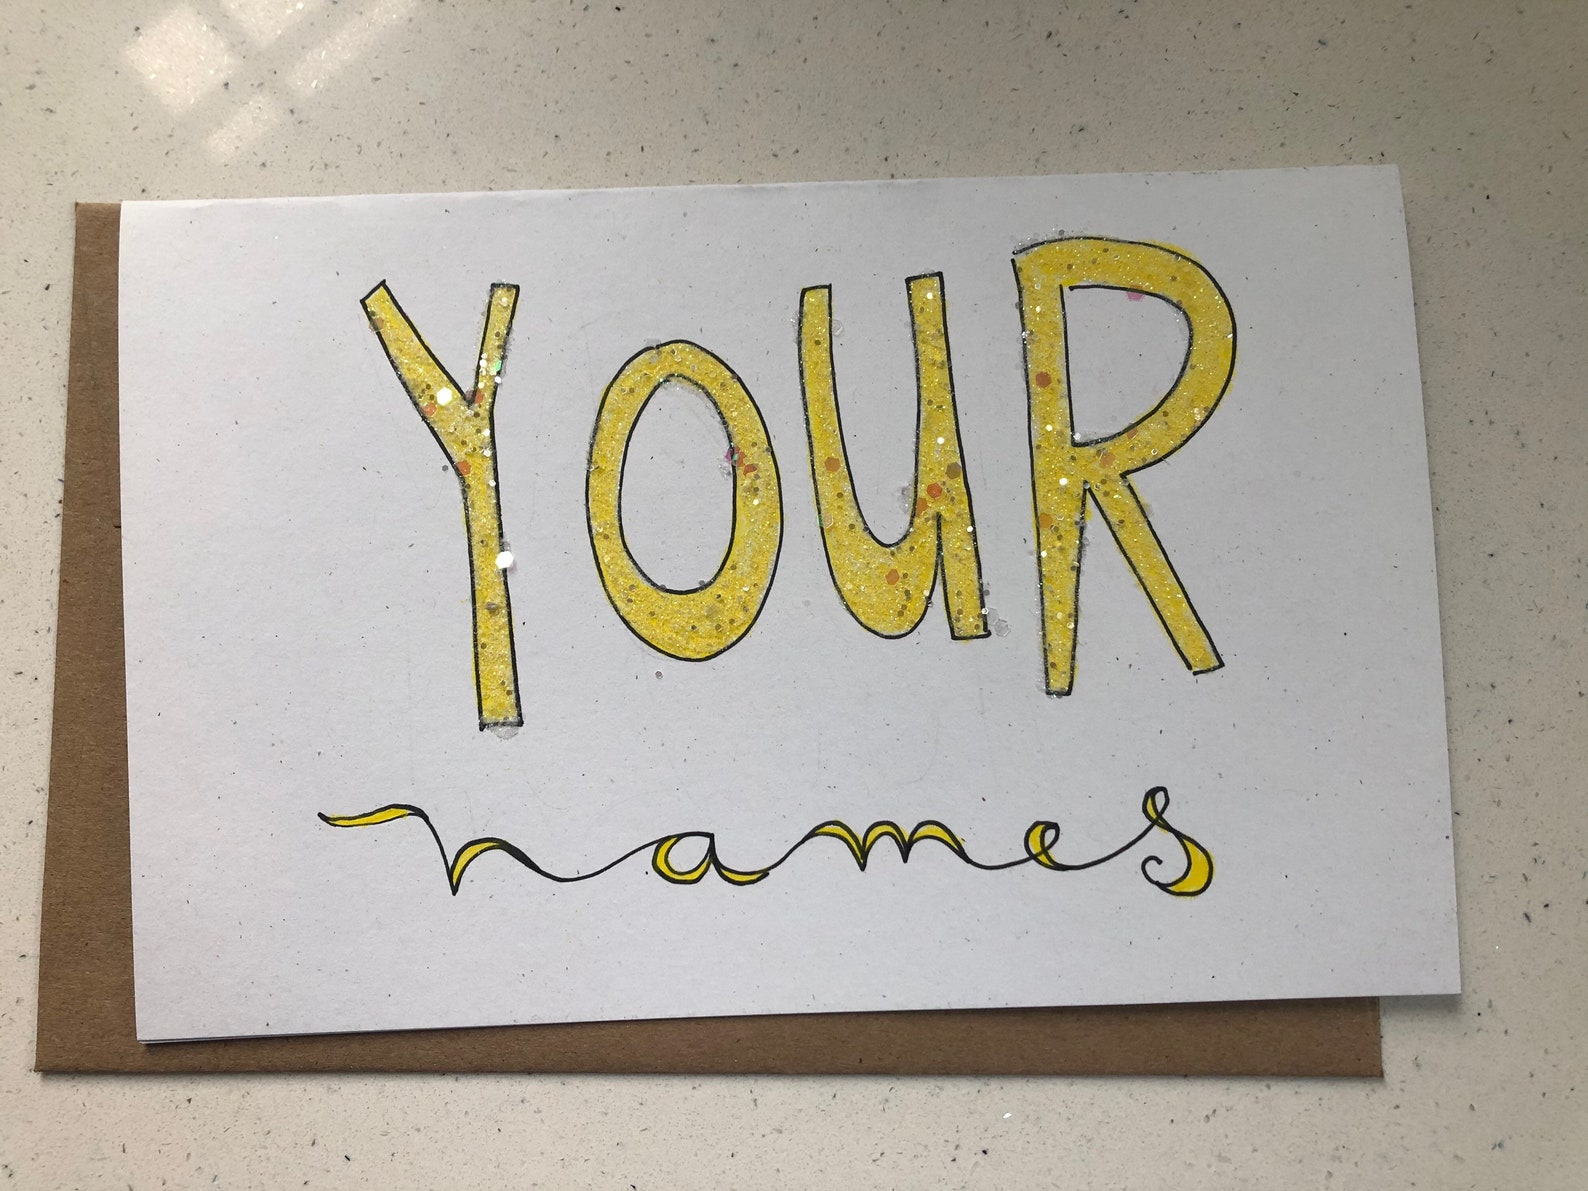 YOUR
names